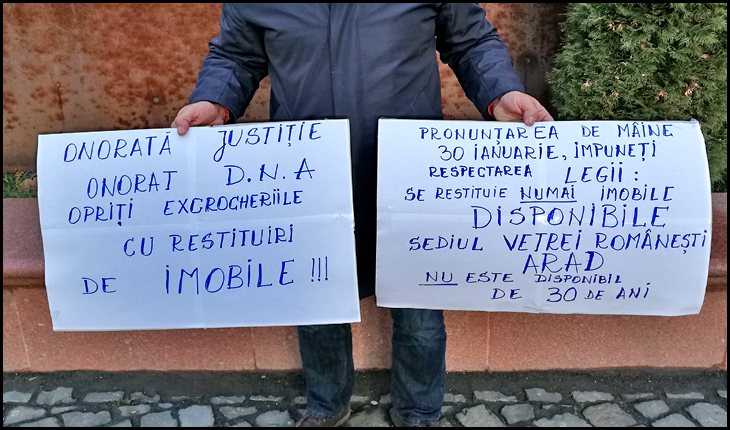 ONORATĂ JUSTIȚIE
ONORAT D.N.A
OPRIȚI EXCROCHERIILE
CU RESTITUIRI
DE IMOBILE !!!
PRONUNȚAREA DE MÂINE
30 IANUARIE, IMPUNEȚI
RESPECTAREA LEGII :
SE RESTITUIE NUMAI IMOBILE
DISPONIBILE
SEDIUL VETREI ROMÂNEȘTI
ARAD
NU ESTE DISPONIBIL
DE 30 DE ANI